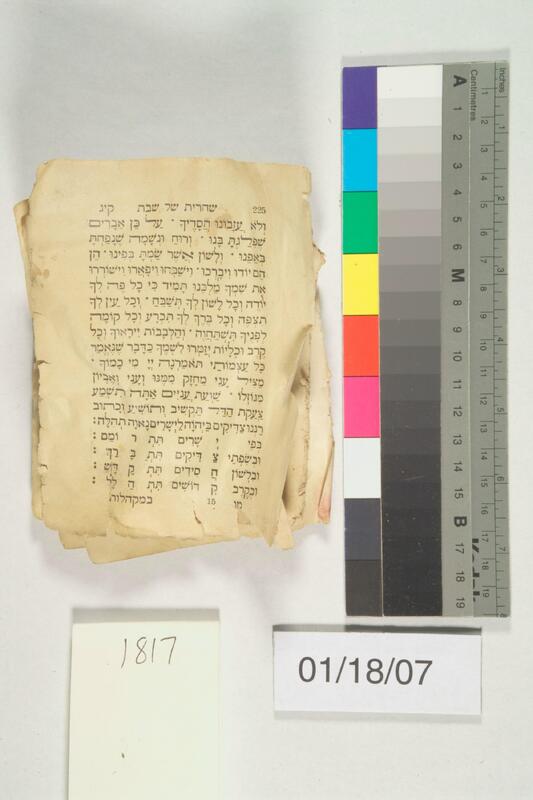 225 שחרית של שבת קיג
ולא עזבונו חסדיך · על כן אברים
שפלגת בנו · ורוח ונשמה שנפחת
באפנו · ולשון אשר שמת בפינו · הן
הם יודו ויברכו · וישבחו ויפארו וישוררו
את שמך מלכנו תמיד כי כל פה לך
יודה וכל לשון לך תשבח · וכל עין לך
תצפה וכל ברך לך תכרע וכל קומה
לפניך תשתחוה · והלבבות ייראוך וכל
קרב וכליות יזמרו לשמך כדבר שנאמר
כל עצמותי תאמרנה יי מי כמוך ·
מציל עני מחזק ממנו ועני ואביון
מגוזלו · שועת עניים אתה תשמע
צעקת הדל תקשיב ותושיע וכתוב
רננו צדיקים ביהוה לישרים נאוה תהלה:
בפי י שרים תת ר ומם :
ובשפתי צ דיקים תת ב רך :
ובלשון ח סידים תת ק דש :
ובקרב ק דושים תת ה לל :
מו 15 במקהלות
inches
Centimetres
1 2 3 4 5 6 7
A 1 2 3 4 5 6 M 8 9 10 11 12 13 14 15 B 17 18 19
Kodak
1817
01/18/07